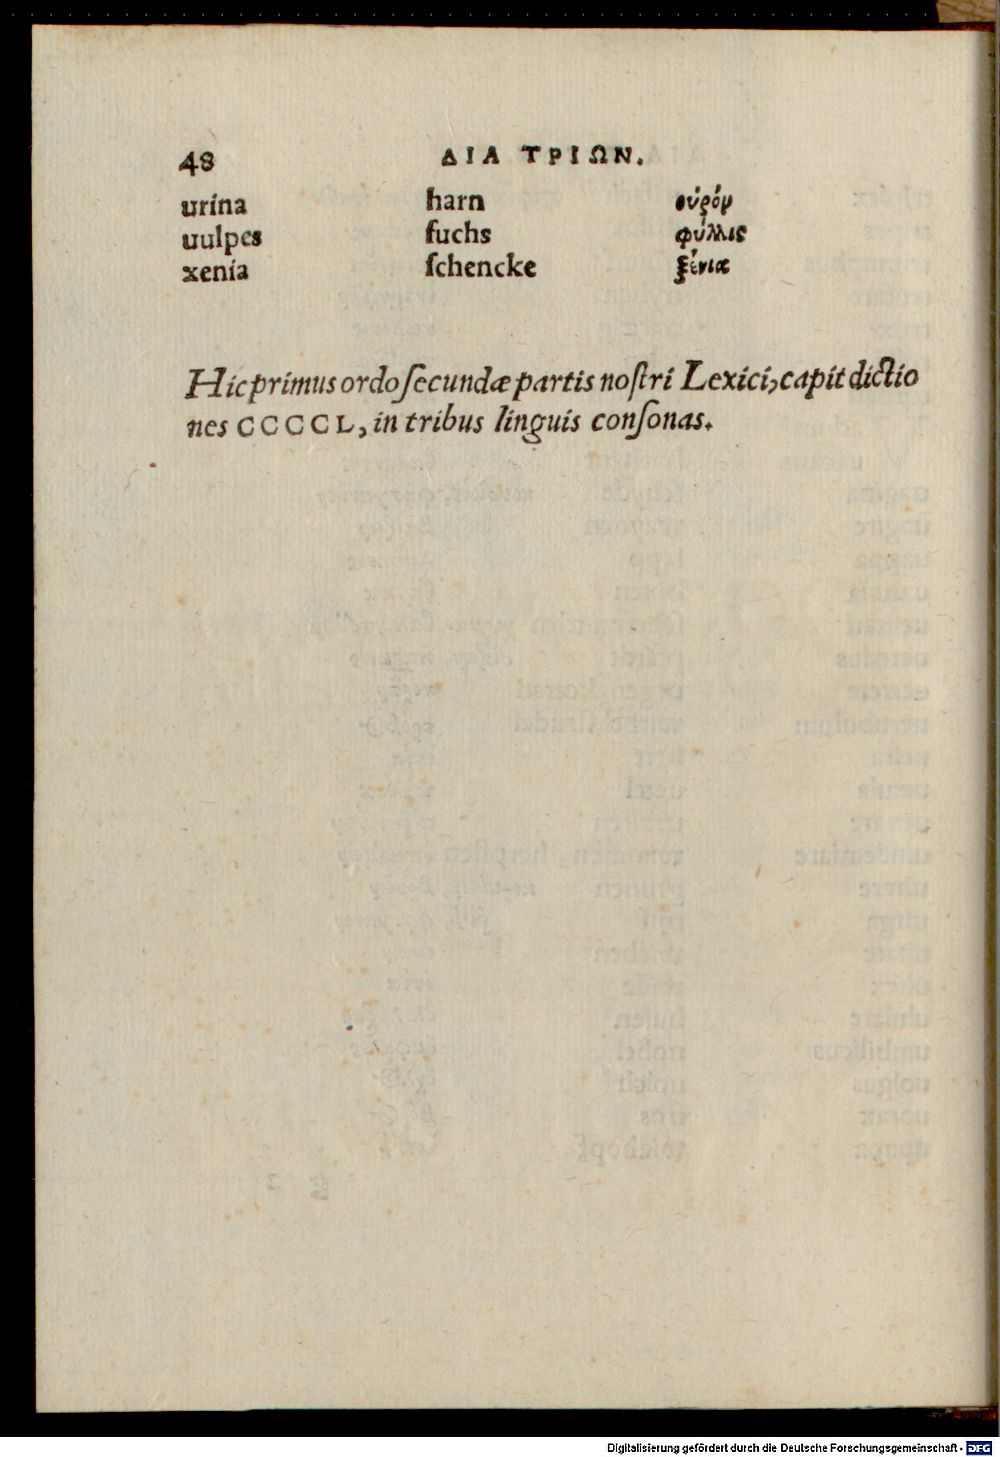 48 ΔΙΑ ΤΡΙΩΝ.
urina harn οὐρόν
uulpes fuchs φύλλις
xenia ſchencke ξένια
Hic primus ordo ſecundæ partis noſtri Lexici, capit dictio
nes CCCCL, in tribus linguis conſonas.
Digitalisierung gefördert durch die Deutsche Forschungsgemeinschaft - DFG